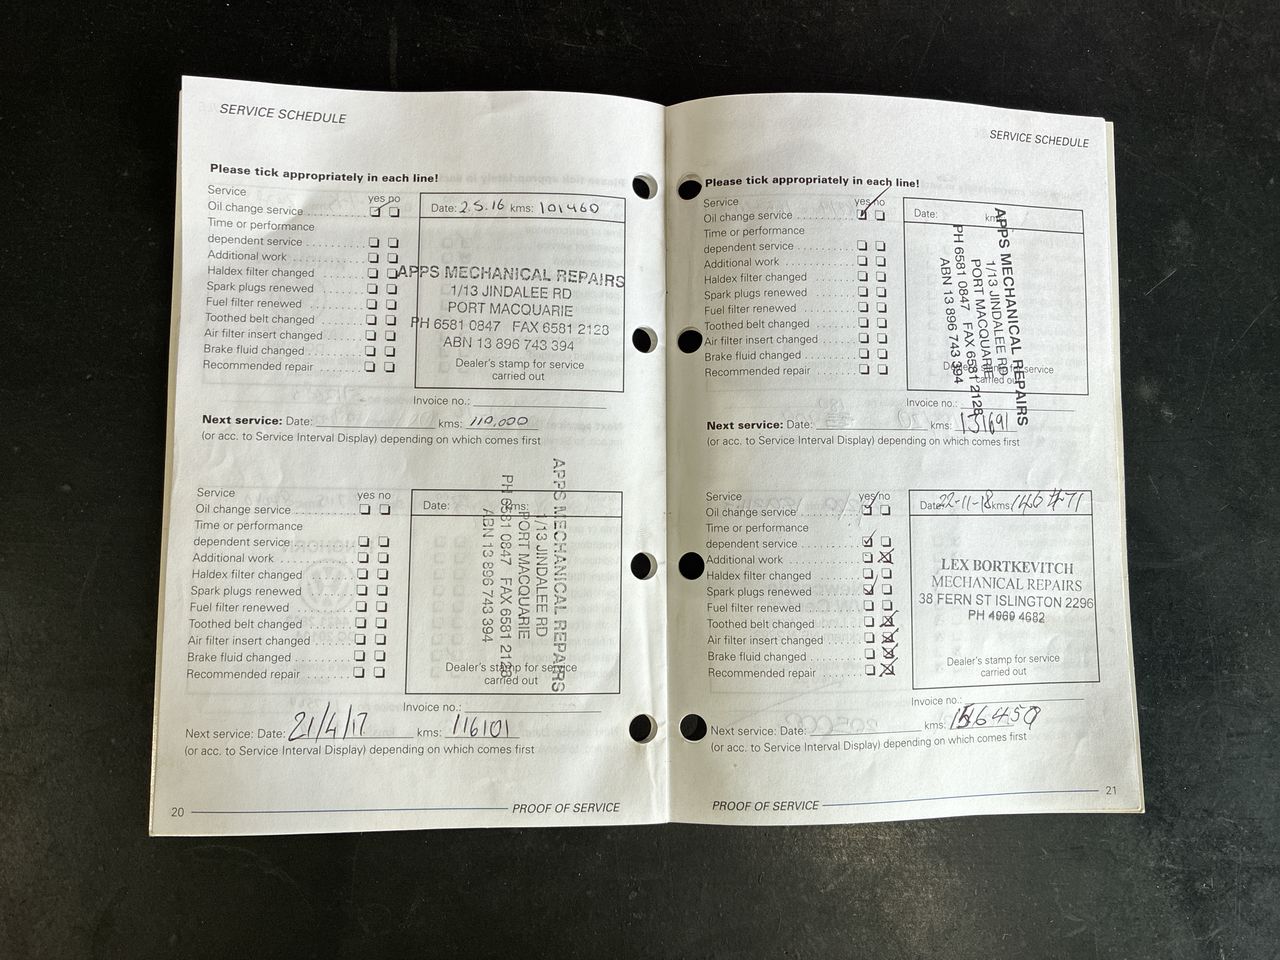 SERVICE SCHEDULE
Please tick appropriately in each line!
Service
yes no
Oil change service
Time or performance
dependent service
Additional work
Haldex filter changed
Spark plugs renewed
Fuel filter renewed
Toothed belt changed
Air filter insert changed
Brake fluid changed
Recommended repair
Date: 2.5.16 kms: 101460
APPS MECHANICAL REPAIRS
1/13 JINDALEE RD
PORT MACQUARIE
PH 6581 0847 FAX 6581 2128
ABN 13 896 743 394
Dealer's stamp for service
carried out
Invoice no.:
Next service: Date: kms: 110,000
(or acc. to Service Interval Display) depending on which comes first
Service
yes no
Oil change service
Time or performance
dependent service
Additional work
Haldex filter changed
Spark plugs renewed
Fuel filter renewed
Toothed belt changed
Air filter insert changed
Brake fluid changed
Recommended repair
Date: kms:
APPS MECHANICAL REPAIRS
1/13 JINDALEE RD
PORT MACQUARIE
PH 6581 0847 FAX 6581 2128
ABN 13 896 743 394
Dealer's stamp for service
carried out
Invoice no.:
Next service: Date: 21/4/17 kms: 116101
(or acc. to Service Interval Display) depending on which comes first
20
PROOF OF SERVICE
SERVICE SCHEDULE
Please tick appropriately in each line!
Service
yes no
Oil change service
Time or performance
dependent service
Additional work
Haldex filter changed
Spark plugs renewed
Fuel filter renewed
Toothed belt changed
Air filter insert changed
Brake fluid changed
Recommended repair
Date:
APPS MECHANICAL REPAIRS
1/13 JINDALEE RD
PORT MACQUARIE
PH 6581 0847 FAX 6581 2128
ABN 13 896 743 394
Dealer's stamp for service
carried out
Invoice no.:
Next service: Date: kms: 131691
(or acc. to Service Interval Display) depending on which comes first
Service
yes no
Oil change service
Time or performance
dependent service
Additional work
Haldex filter changed
Spark plugs renewed
Fuel filter renewed
Toothed belt changed
Air filter insert changed
Brake fluid changed
Recommended repair
Date: 22-11-18 kms:
LEX BORTKEVITCH
MECHANICAL REPAIRS
38 FERN ST ISLINGTON 2296
PH 4969 4682
Dealer's stamp for service
carried out
Invoice no.:
Next service: Date: kms:
(or acc. to Service Interval Display) depending on which comes first
PROOF OF SERVICE
21